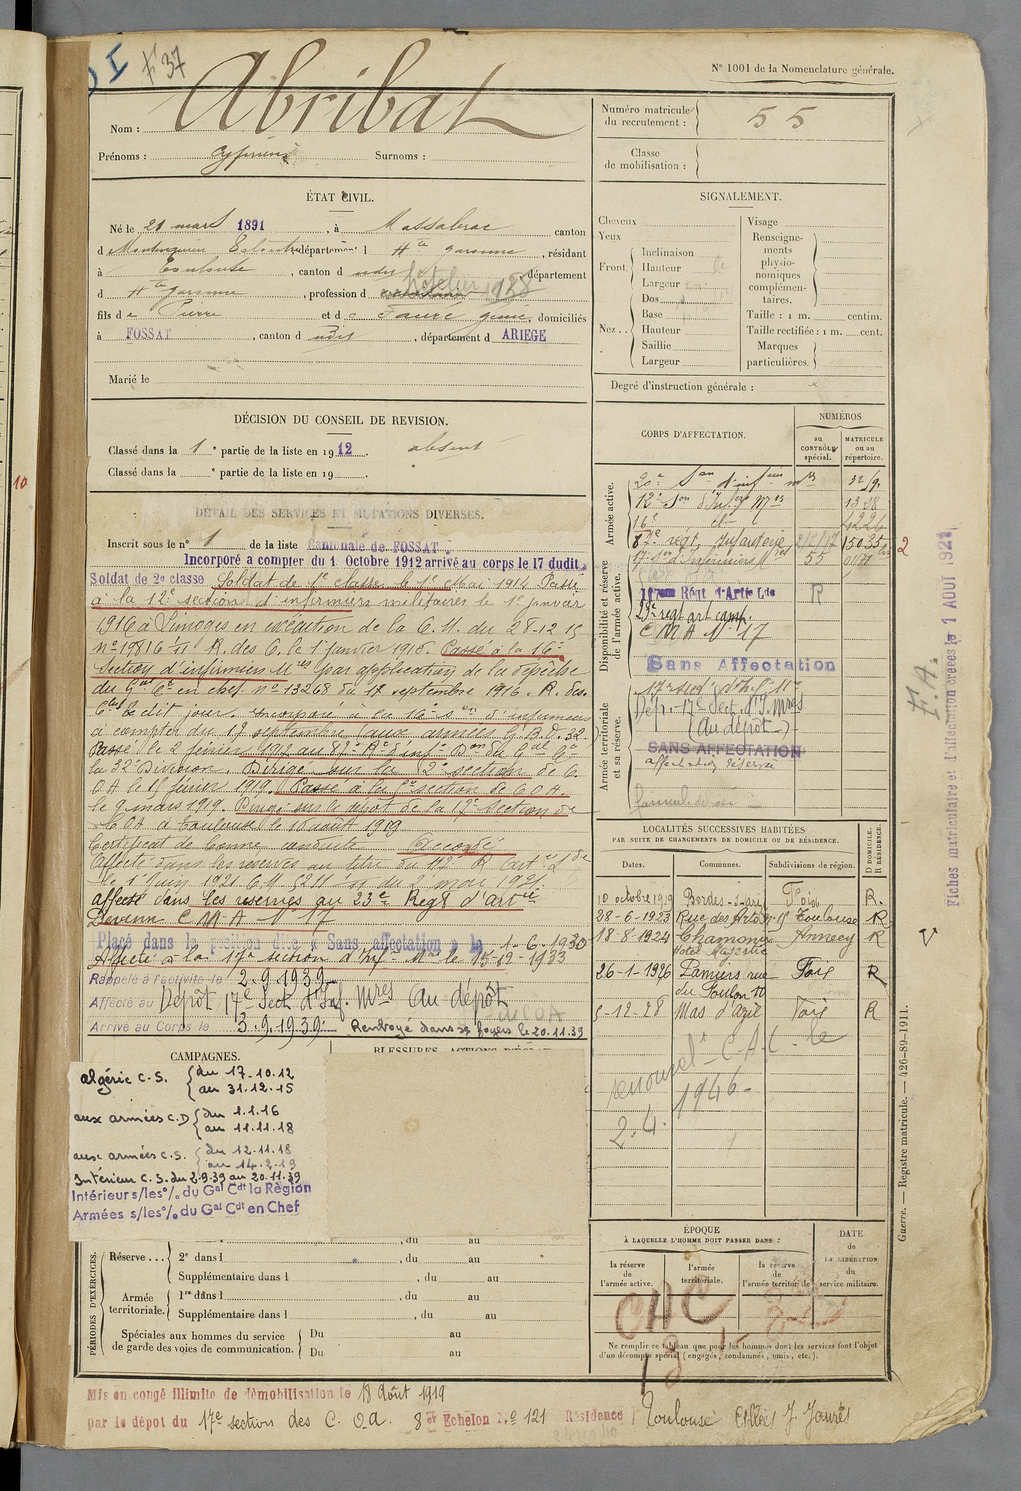 I F 37
N° 1001 de la Nomenclature générale.
Nom : Abribat
Prénoms : Cyprien Surnoms :
Numéro matricule du recrutement : 55
Classe de mobilisation :
ÉTAT CIVIL.
Né le 21 mars 1891, à Massabrac canton
d Montesquieu Volvestre, département d Hte Garonne, résidant
à Toulouse, canton d udit, département
d Hte Garonne, profession d hôtelier 1928
fils de Pierre et de Faure, domiciliés
à FOSSAT, canton d udit, département d ARIEGE
Marié le
SIGNALEMENT.
Cheveux
Yeux
Front. Inclinaison
Hauteur
Largeur
Nez. . Dos
Base
Hauteur
Saillie
Largeur
Visage
Renseignements physionomiques complémentaires.
Taille : 1 m. centim.
Taille rectifiée : 1 m. cent.
Marques particulières.
Degré d'instruction générale :
DÉCISION DU CONSEIL DE REVISION.
Classé dans la 1e partie de la liste en 1912. absent
Classé dans la e partie de la liste en 19 .
DÉTAIL DES SERVICES ET MUTATIONS DIVERSES.
Inscrit sous le n° 1 de la liste Cantonale de FOSSAT.
Incorporé à compter du 1 Octobre 1912 arrivé au corps le 17 dudit
Soldat de 2e classe Soldat de 1e classe le 1er Mai 1914. Passé
à la 12e section d'infirmiers militaires le 1er janvier
1916 à Limoges en exécution de la C. M. du 28-12 15
R. des C. le 1er janvier 1916. Passé à la 16e
Section d'infirmiers Mres par application de la dépêche
du Gal Ct en chef n° 13268 du 17 septembre 1916. R. des
Ctes le dit jour. Incorporé à la 16e son d'infirmiers
à compter du 17 septembre (aux armées G.B.D. 32.)
Passé le 2 février 1918 au
la 32e Division. Dirigé sur la 2e section de C
O A le 15 février 1919. Passé à la section de C O A.
le 9 mars 1919. Dirigé sur le dépôt de la 17e Section de
C O A à Toulouse le 16 août 1919
Certificat de bonne conduite Accordé
Affecté dans les réserves au titre du 117e R Artie Lde
le 1er Juin 1921 C M 5211 du 2 mai 1921
affecté dans les réserves au 23e Regt d'artie
Devenu C M A N° 17
Placé dans la position dite « Sans affectation » le 1-6-1930
Affecté à la 17e section d'Infrs Mres le 15-12-1933
Rappelé à l'activité le 2.9.1939
Affecté au Dépôt 17e Sect. d'Inf. Mres Au dépôt
Arrivé au Corps le 3.9.1939. Renvoyé dans ses foyers le 20.11.39
CORPS D'AFFECTATION.
NUMÉROS
au CONTRÔLE spécial.
MATRICULE ou au répertoire.
Armée active.
12e Son d'Infers Mres 1328
16e d° 4226
régt Infanterie 15035
2
17e Son d'Infirmiers Mres 55
Disponibilité et réserve de l'armée active.
117eme Régt d'Artie Lde R
23e regt art camp.
C M A N° 17
Sans Affectation
Armée territoriale et sa réserve.
17e sect. d'Inf. Mre
Dép. 17e Sect. d'I. Mres
(Au dépôt)
SANS AFFECTATION
affectation réservée
LOCALITÉS SUCCESSIVES HABITÉES
PAR SUITE DE CHANGEMENTS DE DOMICILE OU DE RÉSIDENCE.
Dates. Communes. Subdivisions de région. D DOMICILE. R RÉSIDENCE.
10 octobre 1919 Bordes-s-arize Foix R.
28-6-1923 Rue des Arts n° 15 Toulouse R
18-8-1924 Chamonix Hotel Majestic Annecy R
26-1-1926 Pamiers rue du Toulon 10 Foix R
5-12-28 Mas d'azil Foix R
2.4. 1946
CAMPAGNES.
BLESSURES, ACTIONS D'ÉCLAT
algérie C.S. du 17-10.12 au 31.12.15
aux armées C.D. du 1.1.16 au 11.11.18
aux armées C.S. du 12.11.18 au 14.2.19
Intérieur C.S. du 2.9.39 au 20.11.39
Intérieur s/les °/. du Gal Cdt la Région
Armées s/les °/. du Gal Cdt en Chef
PÉRIODES D'EXERCICES.
, du au
Réserve . . . 2e dans l , du au
Supplémentaire dans l , du au
Armée territoriale. 1re dans l , du au
Supplémentaire dans l , du au
Spéciales aux hommes du service de garde des voies de communication. Du au
Du au
ÉPOQUE
À LAQUELLE L'HOMME DOIT PASSER DANS :
la réserve de l'armée active.
l'armée territoriale.
la réserve de l'armée territoriale
DATE de LA LIBÉRATION du service militaire.
Ne remplir ce tableau que pour les hommes dont les services font l'objet d'un décompte spécial (engagés, condamnés, omis, etc.).
Mis en congé illimité de démobilisation le 18 Août 1919
par le dépôt du 17e section des C. O. A. 8e Echelon N° 121 Résidence Toulouse Allées J. Jaurès
F.A.
Fiches matriculaire et d'affectation créées le 1 AOUT 1921
Guerre. — Registre matricule. — 426-89-1911.
10